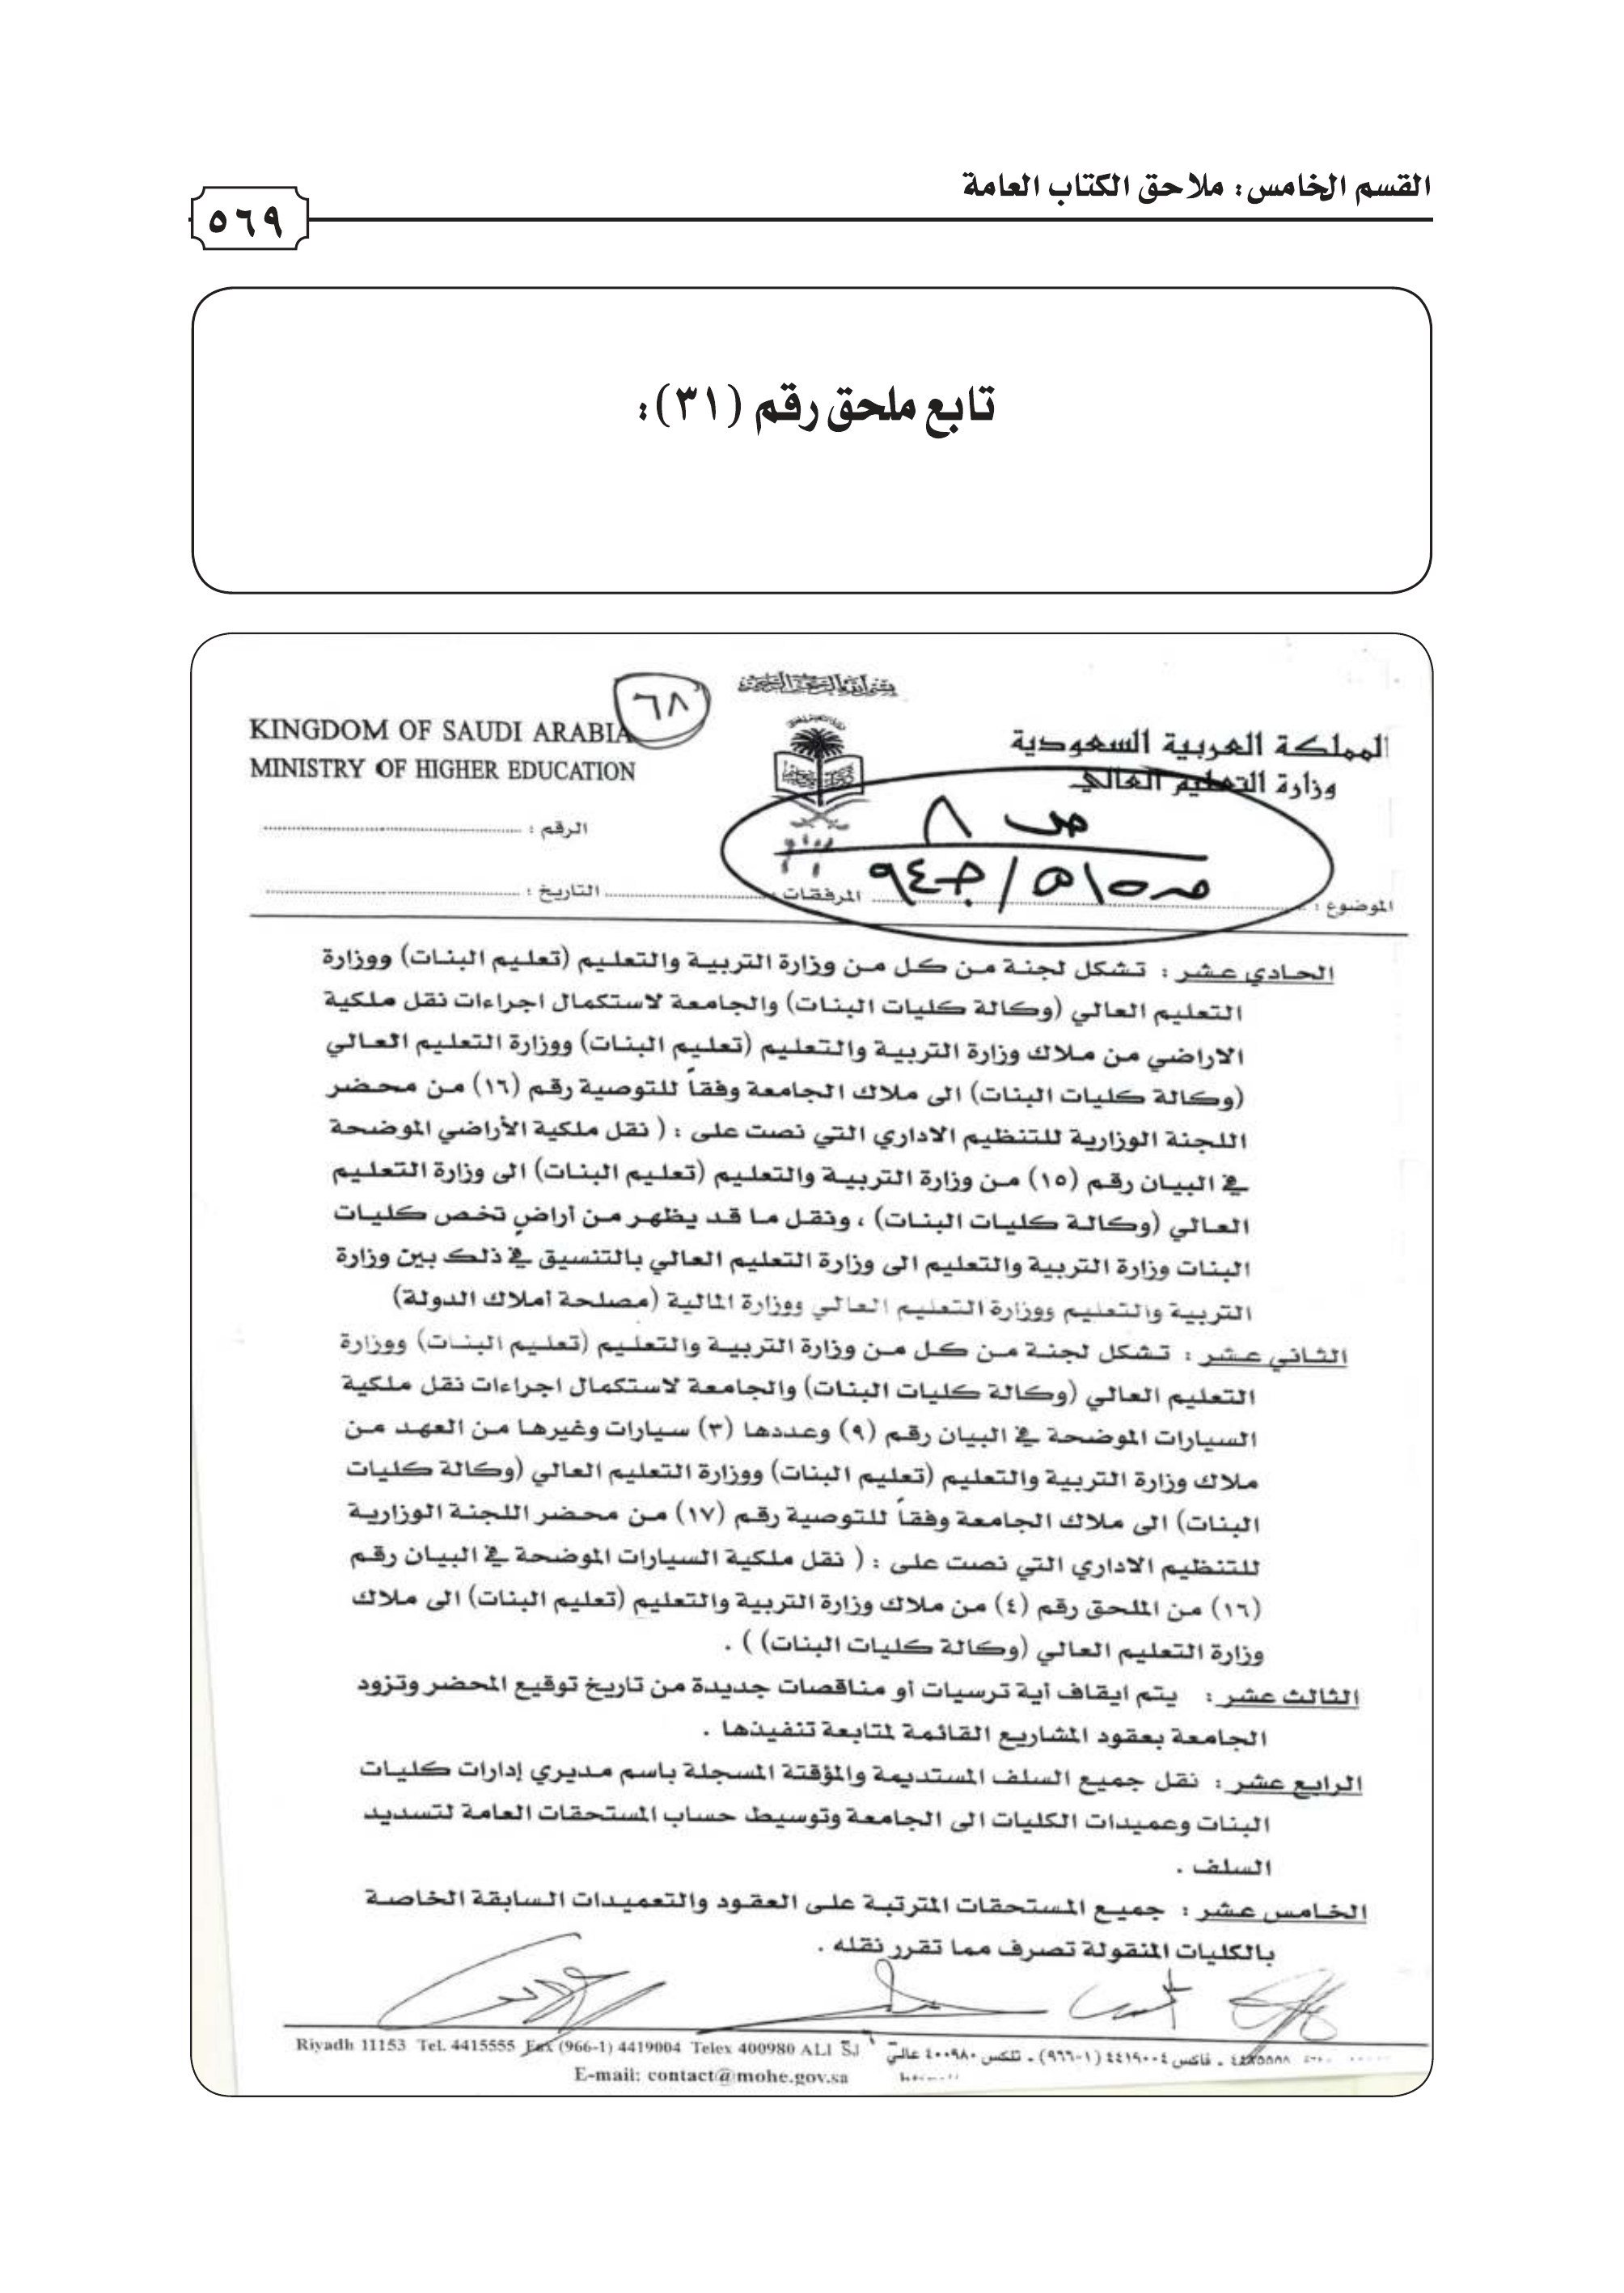 القسم الخامس: ملاحق الكتاب العامة
٥٦٩
تابع ملحق رقم (٣١):
بسم الله الرحمن الرحيم
٦٨
KINGDOM OF SAUDI ARABIA
MINISTRY OF HIGHER EDUCATION
المملكة العربية السعودية
وزارة التعليم العالي
ص ٨
الرقم :
الموضوع : المرفقات : التاريخ :
الحادي عشر : تشكل لجنة من كل من وزارة التربية والتعليم (تعليم البنات) ووزارة
التعليم العالي (وكالة كليات البنات) والجامعة لاستكمال اجراءات نقل ملكية
الاراضي من ملاك وزارة التربية والتعليم (تعليم البنات) ووزارة التعليم العالي
(وكالة كليات البنات) الى ملاك الجامعة وفقاً للتوصية رقم (١٦) من محضر
اللجنة الوزارية للتنظيم الاداري التي نصت على : ( نقل ملكية الأراضي الموضحة
في البيان رقم (١٥) من وزارة التربية والتعليم (تعليم البنات) الى وزارة التعليم
العالي (وكالة كليات البنات) ، ونقل ما قد يظهر من أراضٍ تخص كليات
البنات وزارة التربية والتعليم الى وزارة التعليم العالي بالتنسيق في ذلك بين وزارة
التربية والتعليم ووزارة التعليم العالي ووزارة المالية (مصلحة أملاك الدولة)
الثاني عشر : تشكل لجنة من كل من وزارة التربية والتعليم (تعليم البنات) ووزارة
التعليم العالي (وكالة كليات البنات) والجامعة لاستكمال اجراءات نقل ملكية
السيارات الموضحة في البيان رقم (٩) وعددها (٣) سيارات وغيرها من العهد من
ملاك وزارة التربية والتعليم (تعليم البنات) ووزارة التعليم العالي (وكالة كليات
البنات) الى ملاك الجامعة وفقاً للتوصية رقم (١٧) من محضر اللجنة الوزارية
للتنظيم الاداري التي نصت على : ( نقل ملكية السيارات الموضحة في البيان رقم
(١٦) من الملحق رقم (٤) من ملاك وزارة التربية والتعليم (تعليم البنات) الى ملاك
وزارة التعليم العالي (وكالة كليات البنات) ) .
الثالث عشر : يتم ايقاف أية ترسيات أو مناقصات جديدة من تاريخ توقيع المحضر وتزود
الجامعة بعقود المشاريع القائمة لمتابعة تنفيذها .
الرابع عشر : نقل جميع السلف المستديمة والمؤقتة المسجلة باسم مديري إدارات كليات
البنات وعميدات الكليات الى الجامعة وتوسيط حساب المستحقات العامة لتسديد
السلف .
الخامس عشر : جميع المستحقات المترتبة على العقود والتعميدات السابقة الخاصة
بالكليات المنقولة تصرف مما تقرر نقله .
Riyadh 11153 Tel. 4415555 Fax (966-1) 4419004 Telex 400980 ALI SJ
فاكس ٤٤١٩٠٠٤ (١-٩٦٦) . تلكس ٤٠٠٩٨٠ عالي
E-mail: contact@mohe.gov.sa